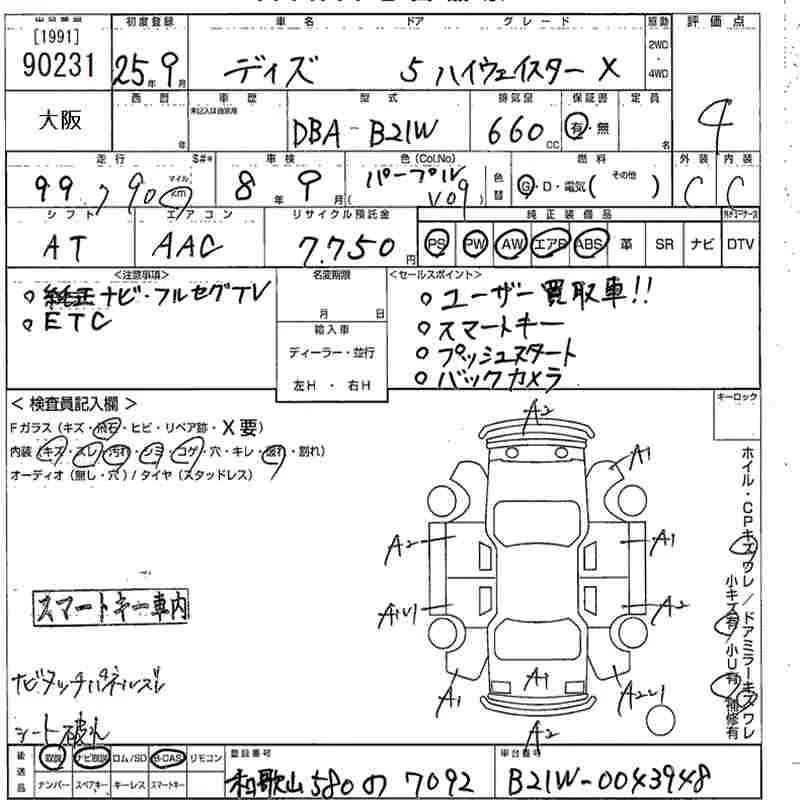 初度登録 車名 ドア グレード 駆動 評価点
[1991]
90231 25年9月 デイズ 5 ハイウェイスター X 2WD・4WD
大阪 西暦 年 車歴 型式 排気量 保証書 定員
DBA-B21W 660cc 有・無 名
4
走行 S#* 車検 色(Col.No) 燃料 外装 内装
99,790 マイル km 8年9月 パープル V09 色替 G・D・電気( その他 ) C C
シフト エアコン リサイクル預託金 純正装備品
AT AAC 7.750円 PS PW AW エアB ABS 革 SR ナビ DTV
<注意事項> 名変期限 <セールスポイント>
○純正ナビ・フルセグTV
○ETC
月 日
輸入車
ディーラー・並行
左H・右H
○ユーザー買取車!!
○スマートキー
○プッシュスタート
○バックカメラ
<検査員記入欄> キーロック
Fガラス(キズ・飛石・ヒビ・リペア跡・X要)
内装(キズ・スレ・汚れ・シミ・コゲ・穴・キレ・破れ・割れ)
オーディオ(無し・穴)/タイヤ(スタッドレス)
A2
A1
A2 A1
A1U1 A2
A1 A1 A2U1
A2
ホイル・CPキズワレ/ドアミラーキズワレ
小キズ有/小U有/補修有
スマートキー車内
ナビタッチパネルズレ
シート破れ
後送品 取説 ナビ取説 ロム/SD B-CAS リモコン 登録番号 車台番号
ナンバー スペアキー キーレス スマートキー 和歌山580の7092 B21W-0043948